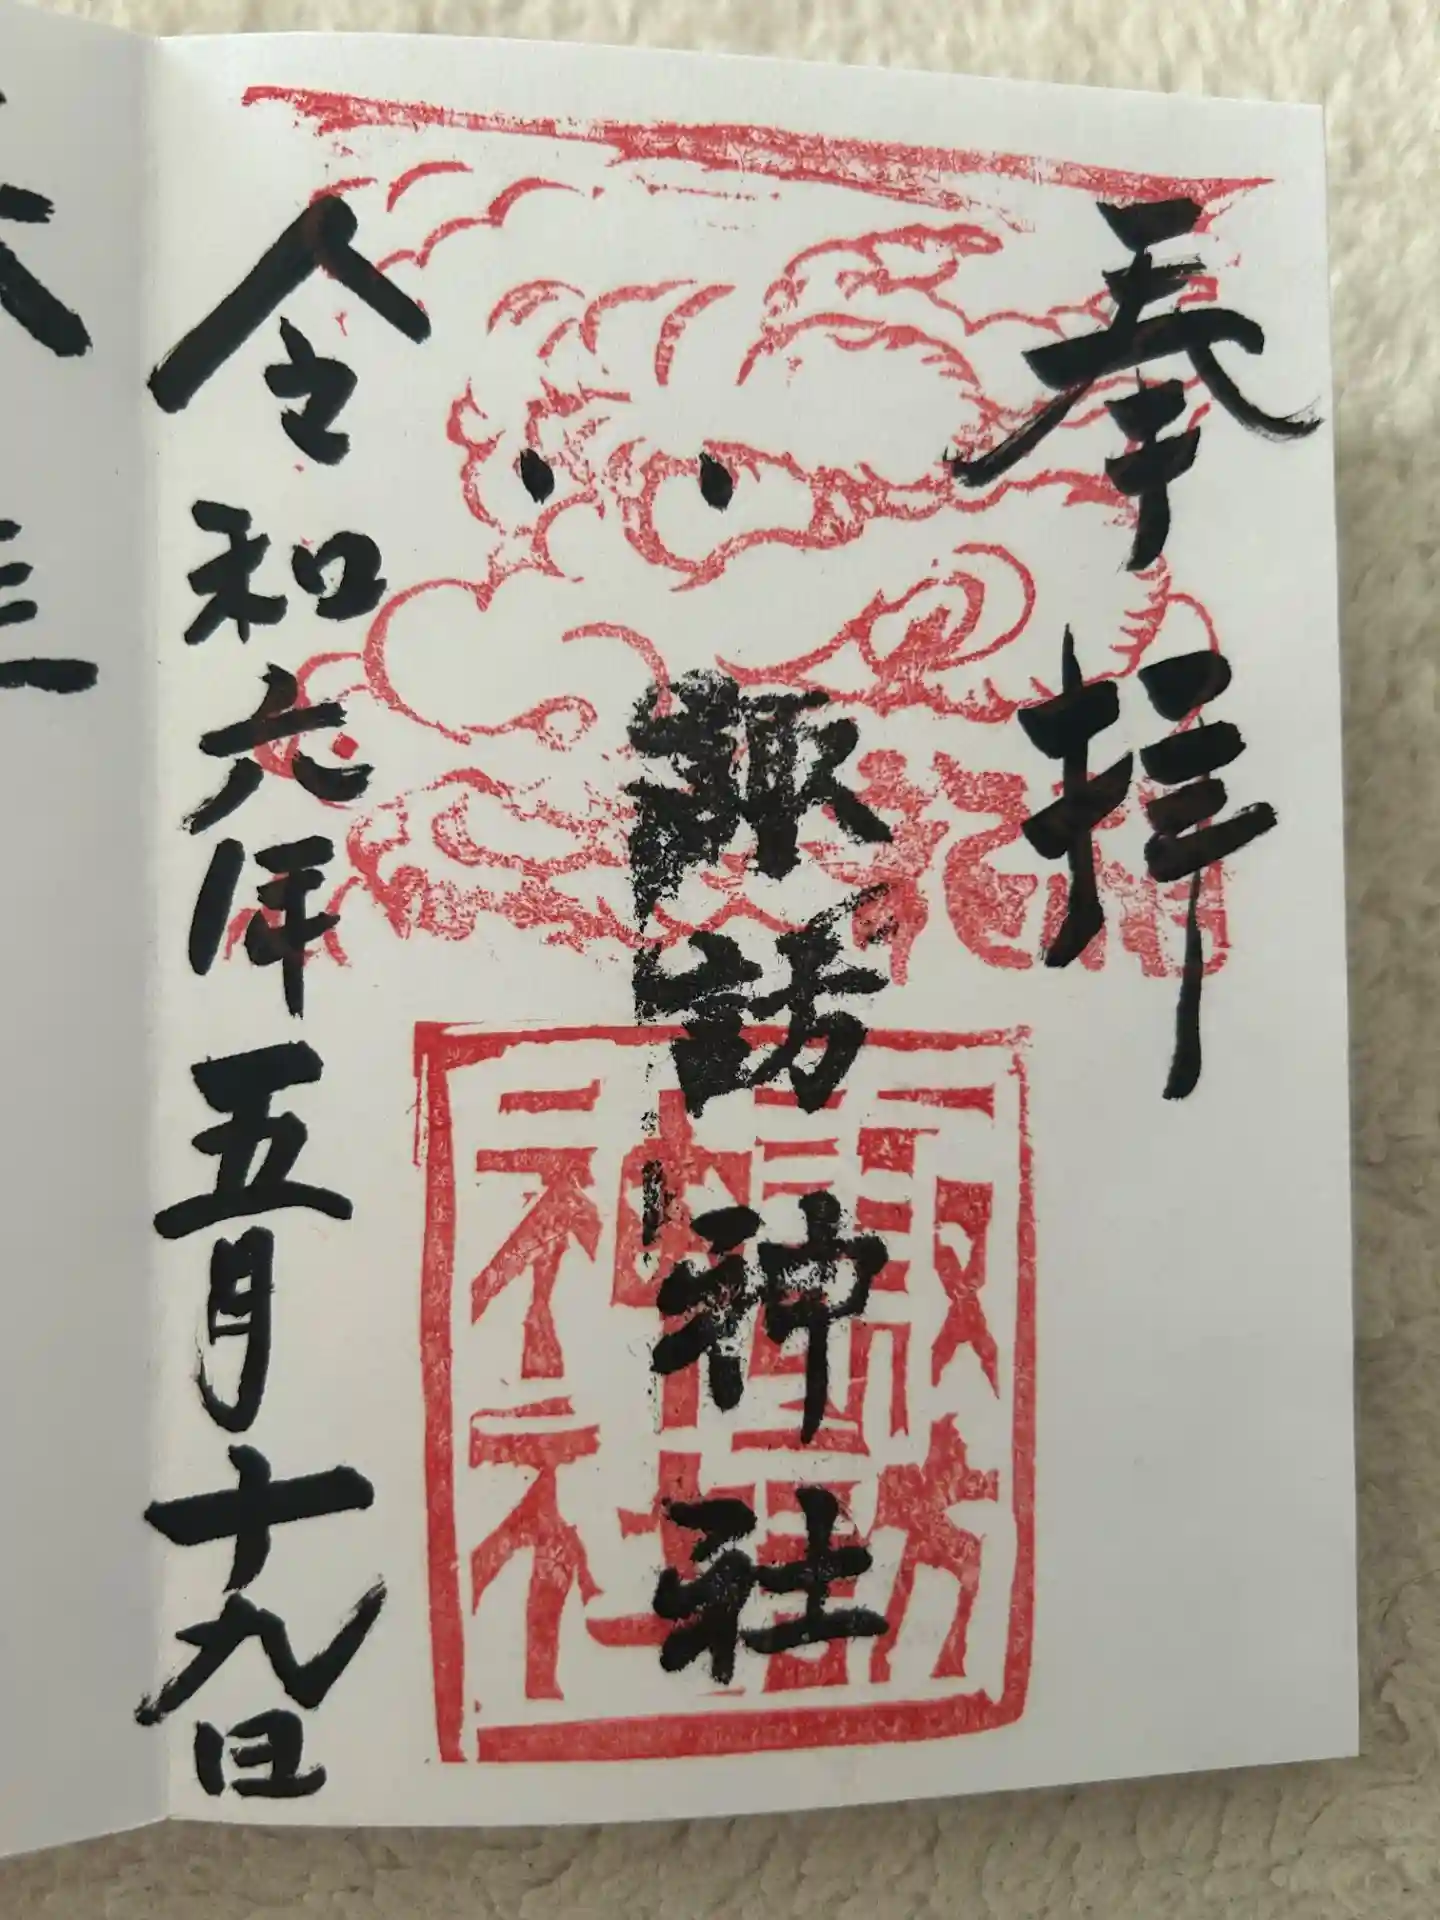 奉拝
諏訪神社
諏訪
神社
令和六年五月十九日